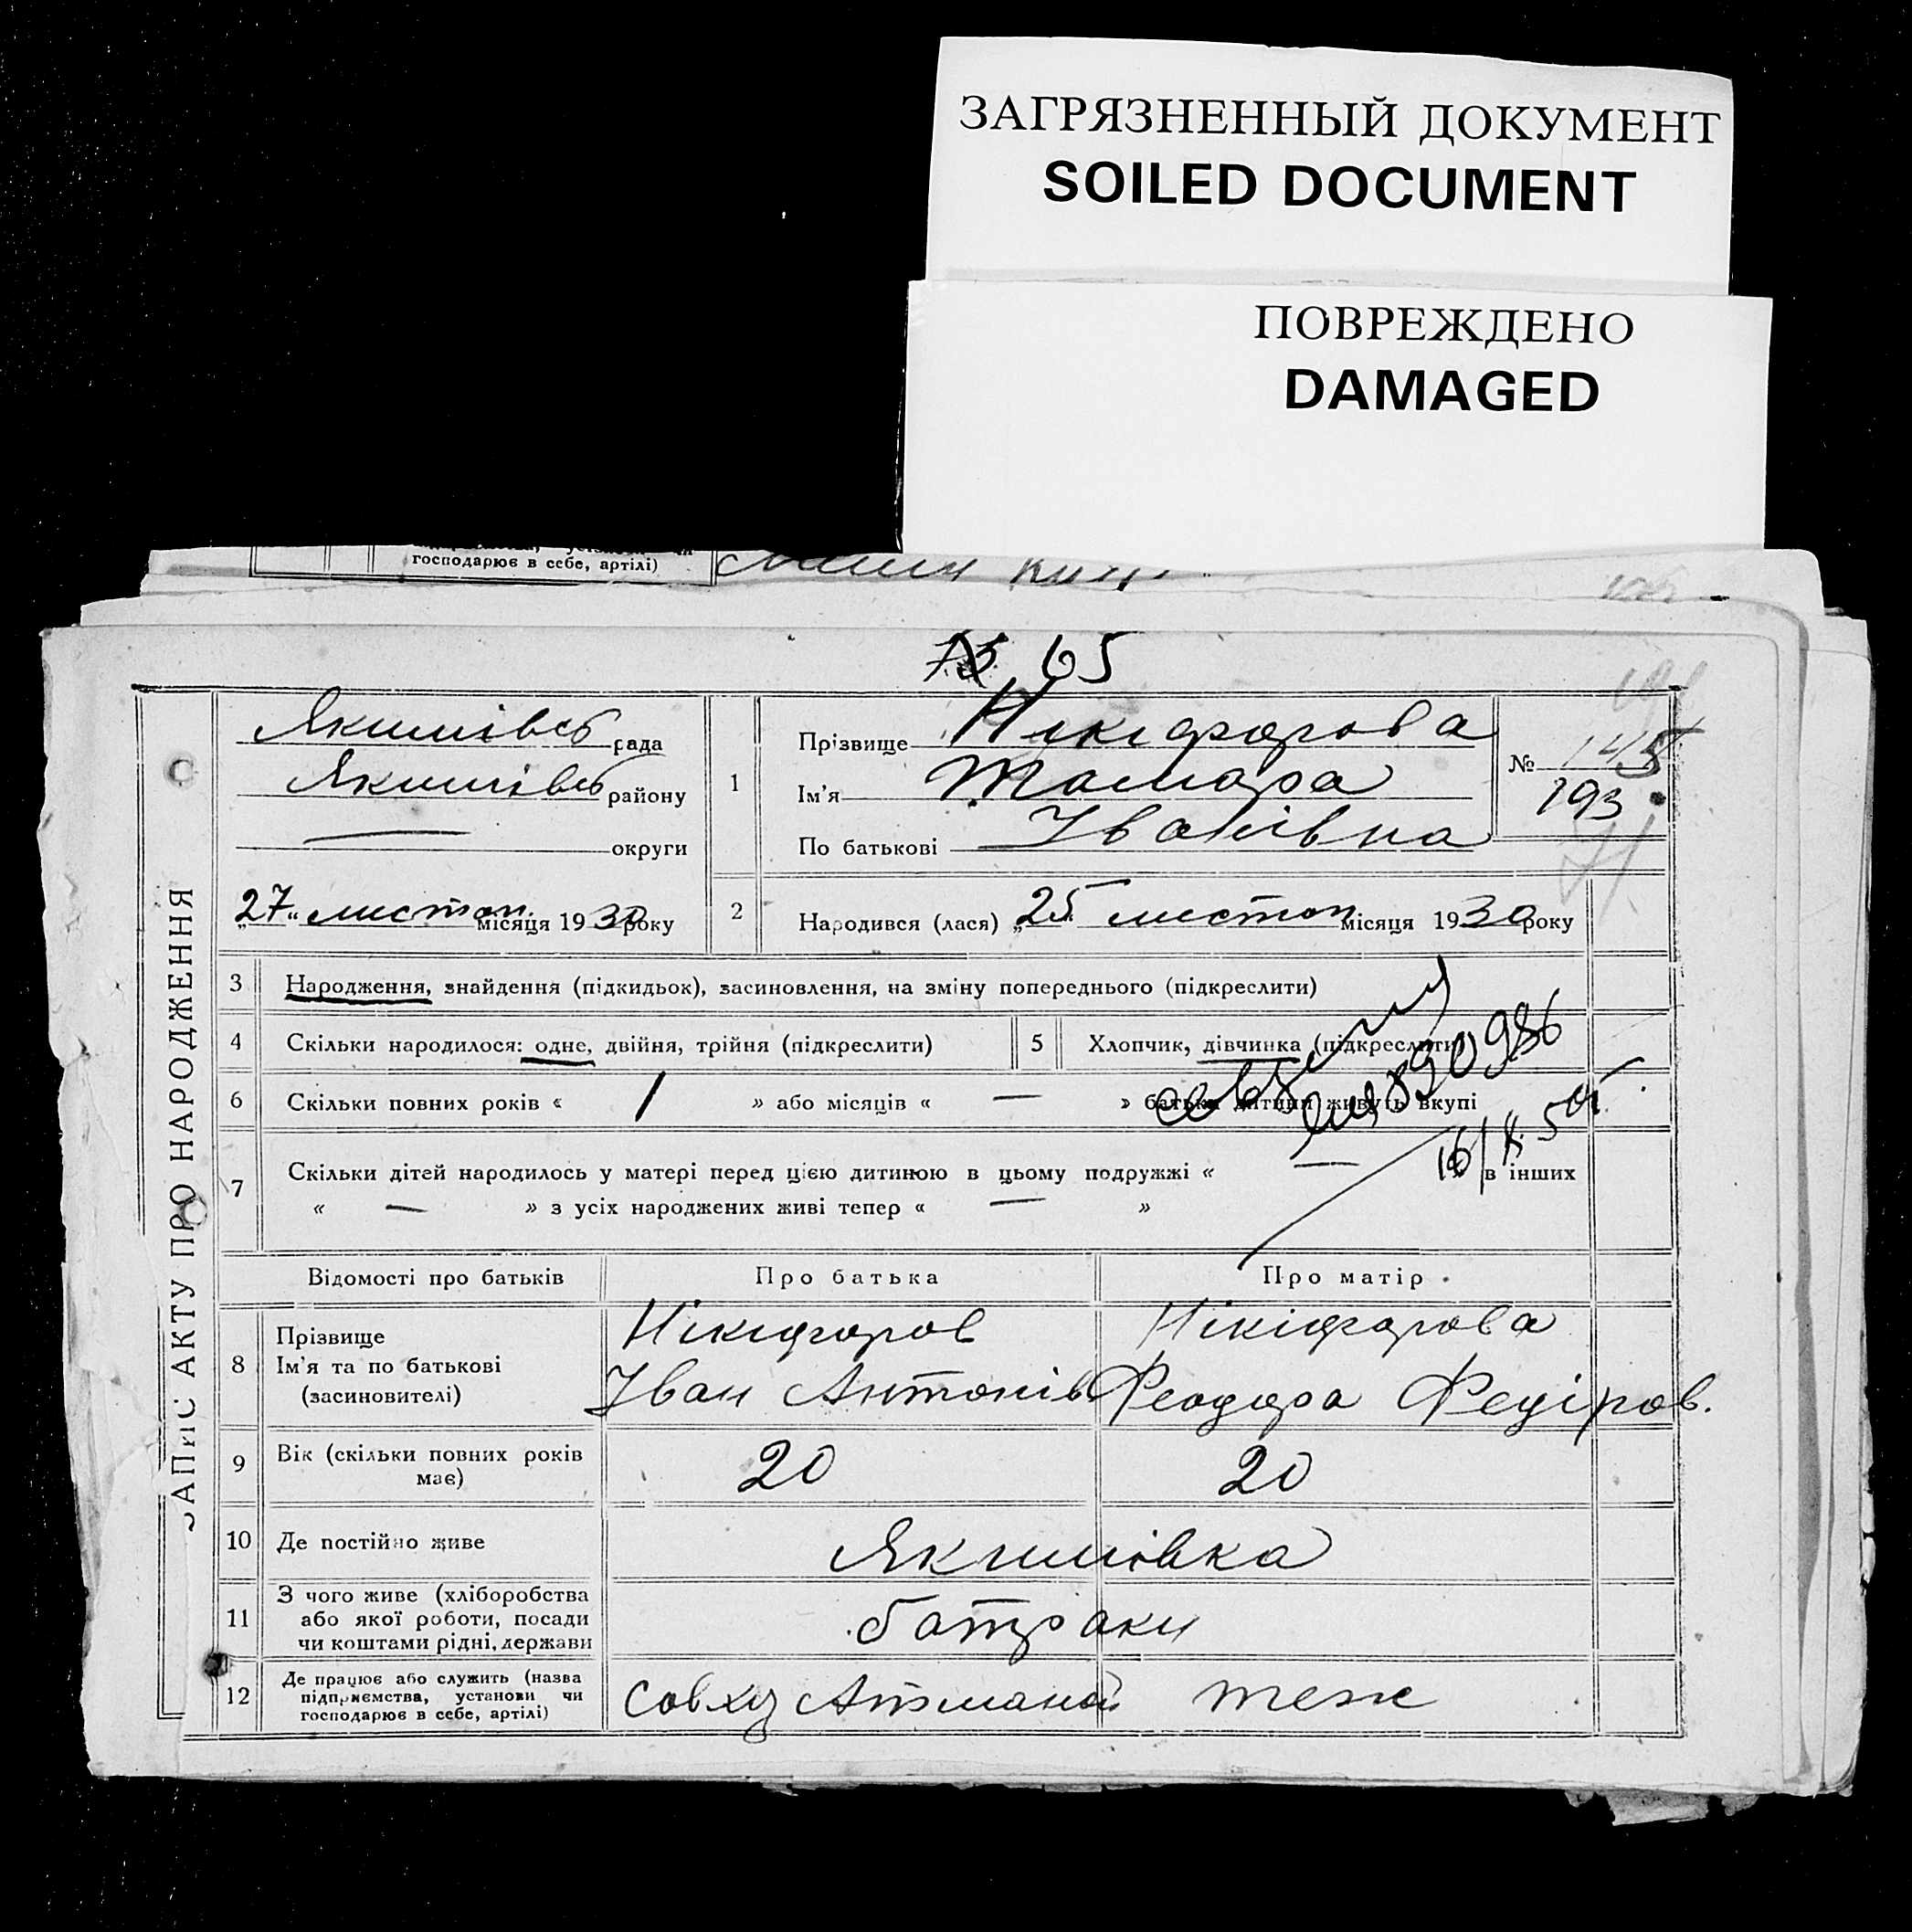 ЗАГРЯЗНЕННЫЙ ДОКУМЕНТ
SOILED DOCUMENT
ПОВРЕЖДЕНО
DAMAGED
господарює в себе, артілі)
65
ЗАПИС АКТУ ПРО НАРОДЖЕННЯ
Якимівсь рада
Якимівсь району
— округи
27 „ листоп. місяця 1930 року
1
Прізвище Нікіфорова
Ім'я Тамара
По батькові Іванівна
№ 145
193
71
2 Народився (лася) „25 листоп місяця 1930 року
3 Народження, знайдення (підкидьок), засиновлення, на зміну попереднього (підкреслити)
4 Скільки народилося: одне, двійня, трійня (підкреслити)
5 Хлопчик, дівчинка (підкреслити)
6 Скільки повних років « 1 » або місяців « — » батьки дитини живуть вкупі
890986
16/X 50
7 Скільки дітей народилось у матері перед цією дитиною в цьому подружжі « — в інших
« — » з усіх народжених живі тепер « — »
Відомості про батьків Про батька Про матір
8 Прізвище
Ім'я та по батькові
(засиновителі)
Нікіфоров
Іван Антонів
Нікіфорова
Феодора Федіров.
9 Вік (скільки повних років
має)
20 20
10 Де постійно живе Якимівка
11 З чого живе (хліборобства
або якої роботи, посади
чи коштами рідні, держави
батраки
12 Де працює або служить (назва
підприємства, установи чи
господарює в себе, артілі)
Совхоз Атманай теж